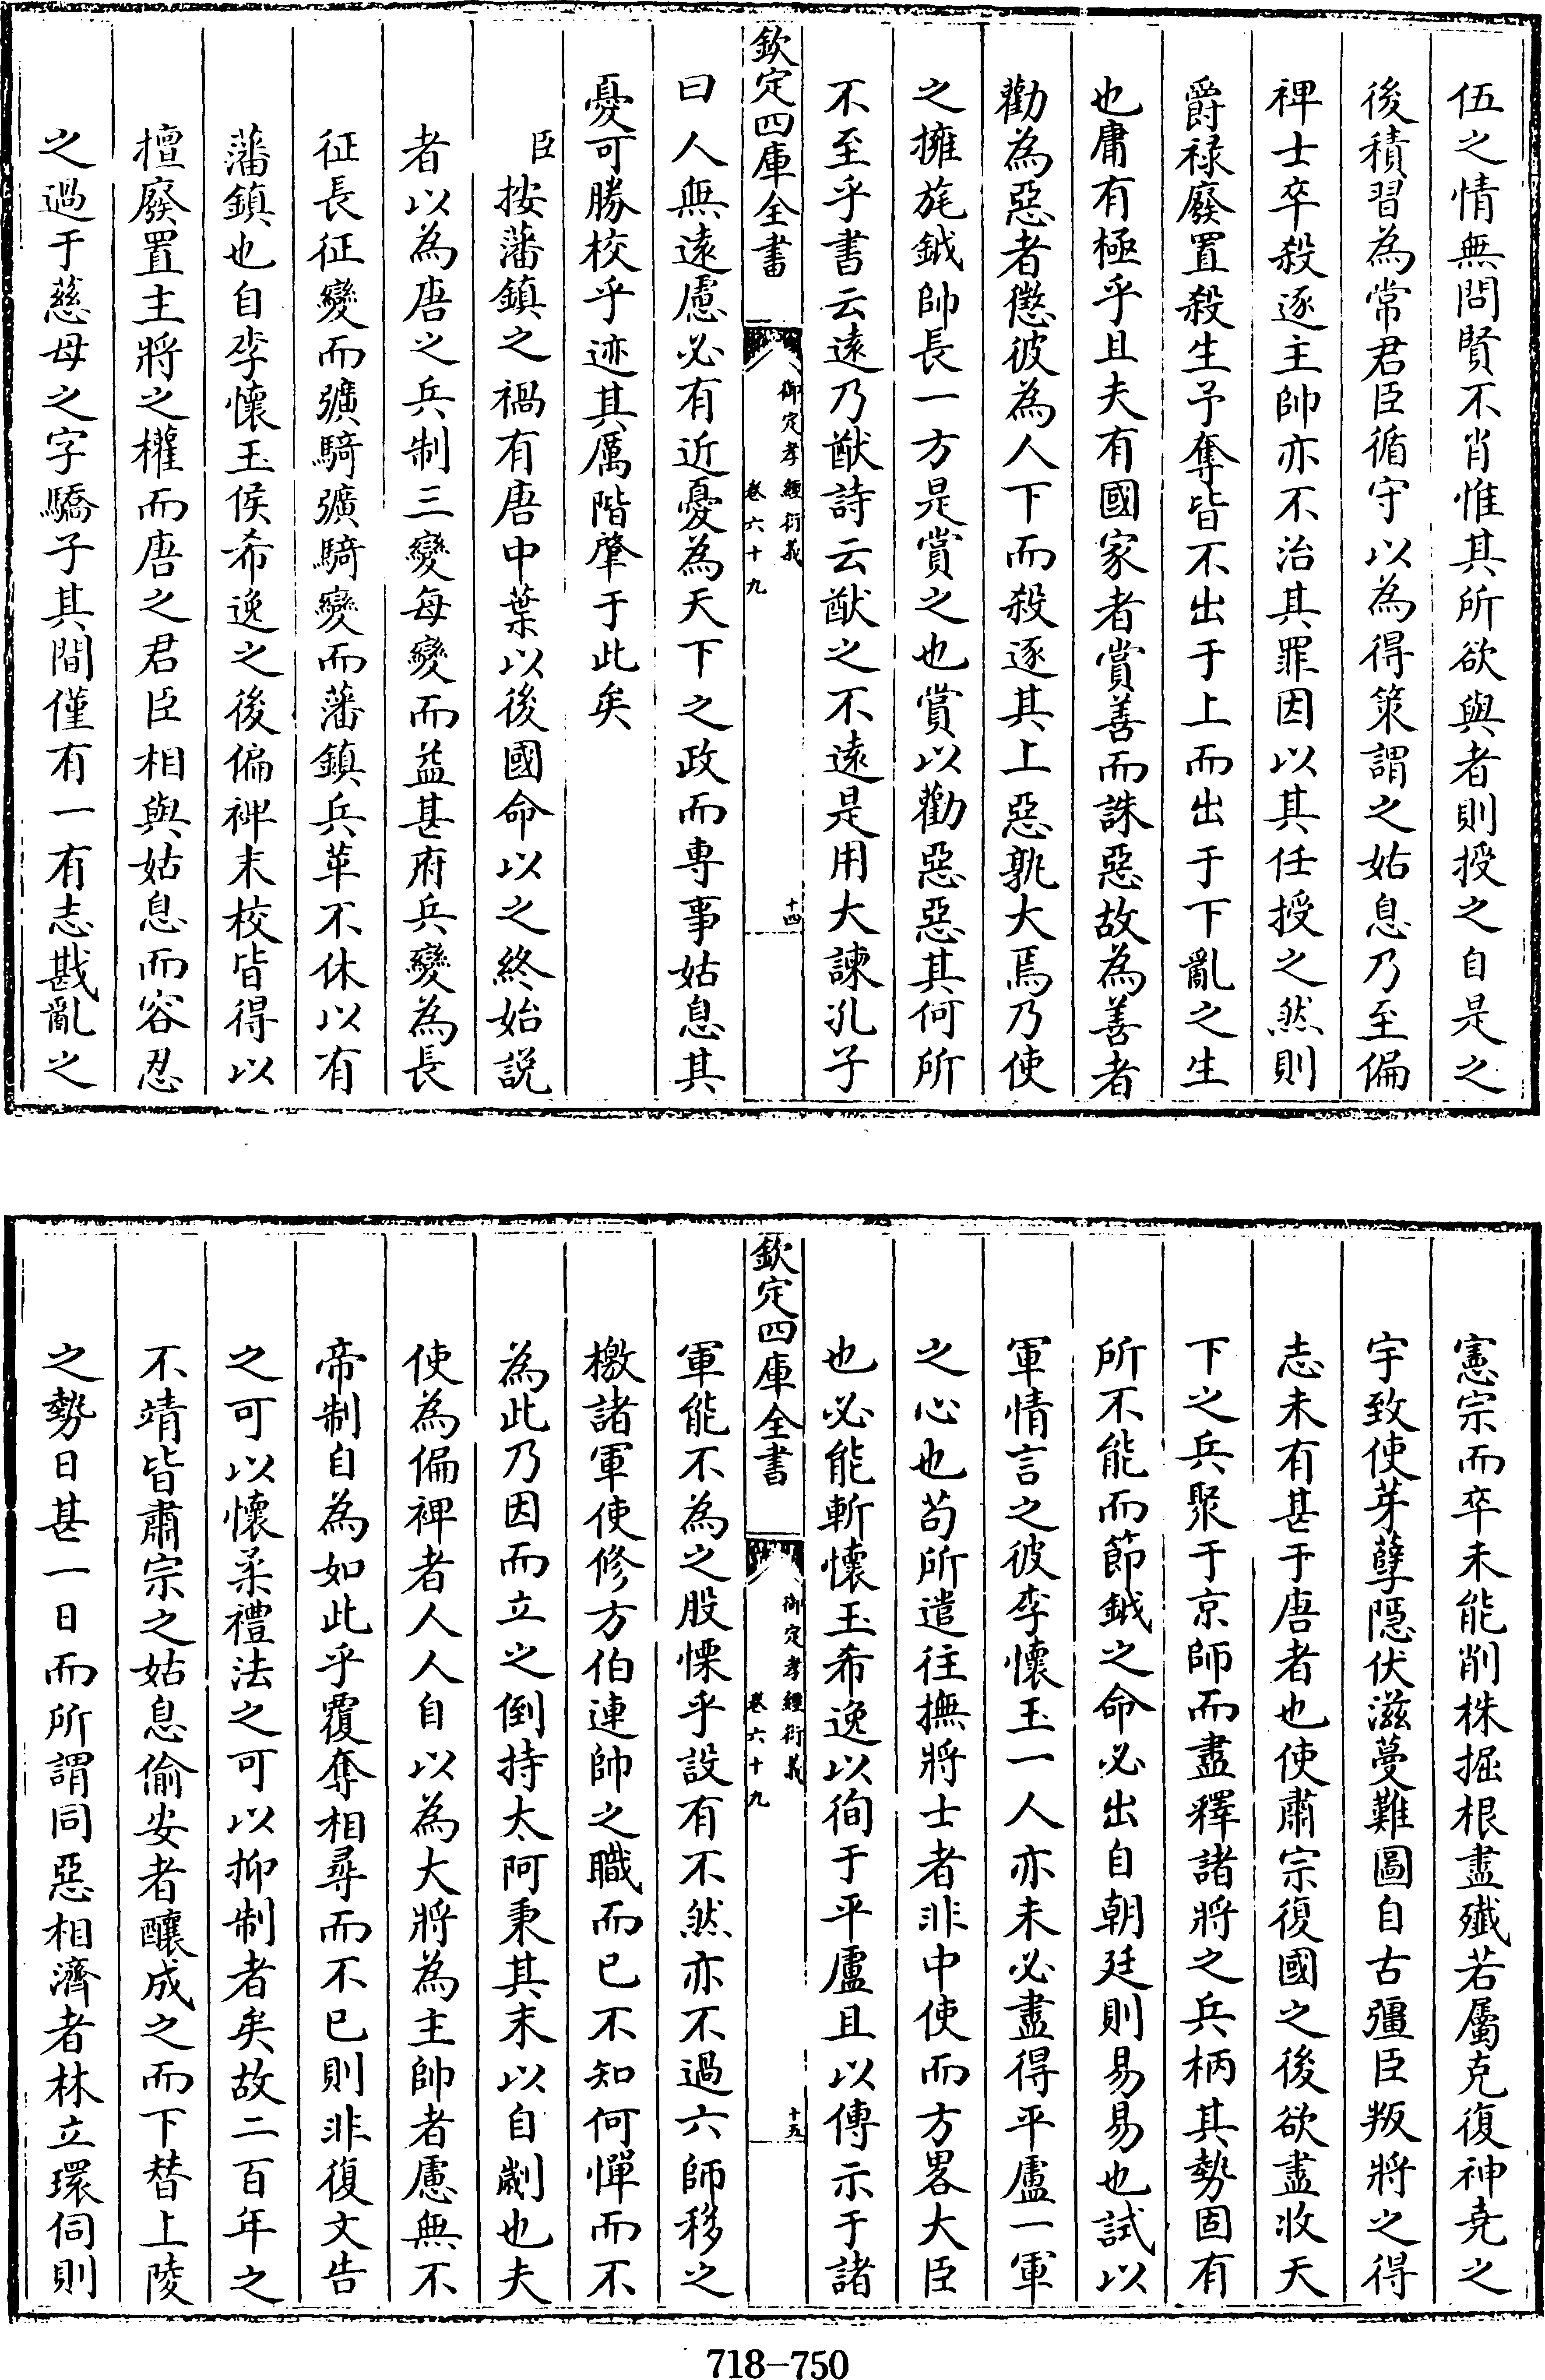 伍之情無問賢不肖惟其所欲與者則授之自是之
後積習為常君臣循守以為得策謂之姑息乃至偏
裨士卒殺逐主帥亦不治其罪因以其任授之然則
爵祿廢置殺生予奪皆不出于上而出于下亂之生
也庸有極乎且夫有國家者賞善而誅惡故為善者
勸為惡者懲彼為人下而殺逐其上惡孰大焉乃使
之擁旄鉞帥長一方是賞之也賞以勸惡惡其何所
不至乎書云遠乃猷詩云猷之不遠是用大諫孔子
欽定四庫全書 御定孝經衍義 卷六十九 十四
曰人無遠慮必有近憂為天下之政而専事姑息其
憂可勝校乎迹其厲階肇于此矣
臣按藩鎮之禍有唐中葉以後國命以之終始説
者以為唐之兵制三變每變而益甚府兵變為長
征長征變而彍騎彍騎變而藩鎮兵革不休以有
藩鎮也自李懷玉侯希逸之後偏裨末校皆得以
檀廢置主將之權而唐之君臣相與姑息而容忍
之過于慈母之字驕子其間僅有一有志戡亂之
憲宗而卒未能削株掘根盡殱若屬克復神堯之
宇致使芽孽隱伏滋蔓難圖自古彊臣叛將之得
志未有甚于唐者也使肅宗復國之後欲盡收天
下之兵聚于京師而盡釋諸將之兵柄其勢固有
所不能而節鉞之命必出自朝廷則易易也試以
軍情言之彼李懷玉一人亦未必盡得平盧一軍
之心也苟所遣往撫將士者非中使而方畧大臣
也必能斬懷玉希逸以徇于平盧且以傳示于諸
欽定四庫全書 御定孝經衍義 卷六十九 十五
軍能不為之股慄乎設有不然亦不過六師移之
檄諸軍使修方伯連帥之職而已不知何憚而不
為此乃因而立之倒持太阿秉其末以自劌也夫
使為偏裨者人人自以為大將為主帥者慮無不
帝制自為如此乎覆奪相尋而不已則非復文告
之可以懷柔禮法之可以抑制者矣故二百年之
不靖皆肅宗之姑息偷安者釀成之而下替上陵
之勢日甚一日而所謂同惡相濟者林立環伺則
718-750